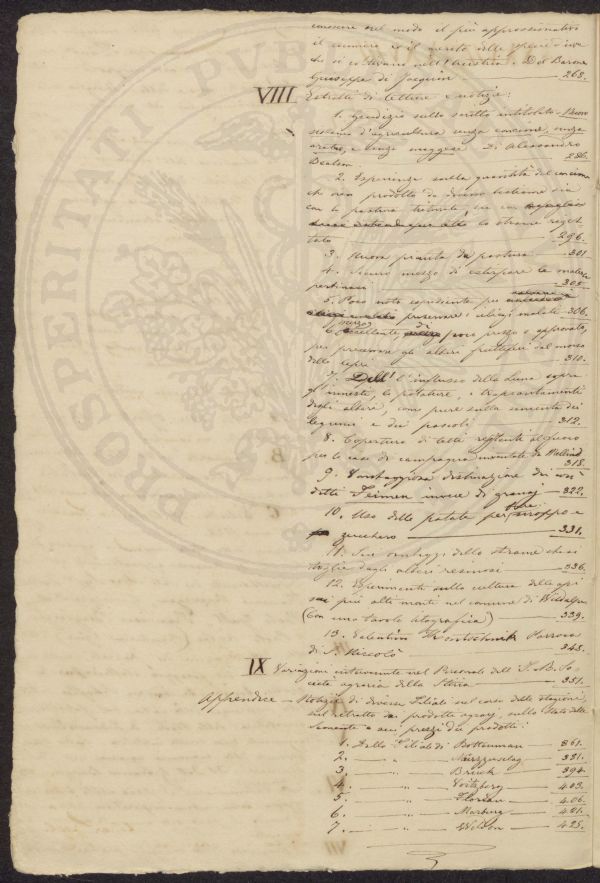 conoscere nel modo il più approssimativo
il comune e il merito delle specie d'uve
che si coltivano nell'Austria. Del Barone
Giuseppe di Jacquin 268.
VIII Estratti di lettere e notizie:
1. Giudizio sullo scritto intitolato - Nuovo
sistema d'agricoltura senza concime, senza
aratro, e senza maggese. Di Alessandro
Beatson. 286.
2. Esperienze sulla quantità del concime
che vien prodotto da diverso bestiame sia
con la pastura triturata, sia con
lo strame veget-
tato 296.
3. Nuova pianta da pastura 301
4. Sicuro mezzo di estirpare la malerba
pertinace 305.
5. Poco noto espediente per
preservare i ciliegi malati 306.
6. Eccellente mezzo di poco prezzo e approvato,
per preservare gli alberi fruttiferi dal morso
delle lepri 310.
7. Dell' l'influsso della Luna sopra
gl'innesti, le potature, i trapiantamenti
degli alberi, come pure sulla semenza dei
legumi e dei pascoli 312.
8. Copertura di tetti resistenti al fuoco
per le case di campagna inventate da
318.
9. Vantaggiosa destinazione dei così
detti Feimen invece di granaj 322.
10. Uso delle patate per fare siroppo e
zucchero 331.
11. Sui vantaggi dello strame che si
toglie dagli alberi resinosi 336.
12. Esperimenti sulla cultura delle api
sui più alti monti nel comune di Wildalpen
(Con una tavola litografica) 339.
13. Valentino Parroco
di S. Niccolò 343.
IX Variazioni intervenute nel Personale dell' I. R. So-
cietà agraria della Stiria 351.
Appendice - Notizie di diverse Filiali sul corso delle stagioni,
sul ritratto dei prodotti agrarj, sullo stato delle
semente e sui prezzi dei prodotti:
1. Dalle Filiali di Rottenman 361.
2. " Mürzzuschlag 381.
3. " Bruck 394.
4. " Voitsberg 403.
5. " Florian 406.
6. " Marburg 421.
7. " Weldon 425.